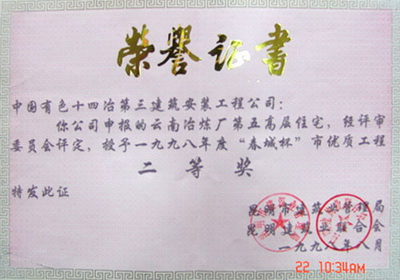 荣誉证书
中国有色十四冶第三建筑安装工程公司：
你公司申报的云南冶炼厂第五高层住宅，经评审
委员会评定，授予一九九八年度“春城杯”市优质工程
二等奖
特发此证
昆明市建筑业管理局
昆明建筑业联合会
一九九八年八月
22 10:34AM